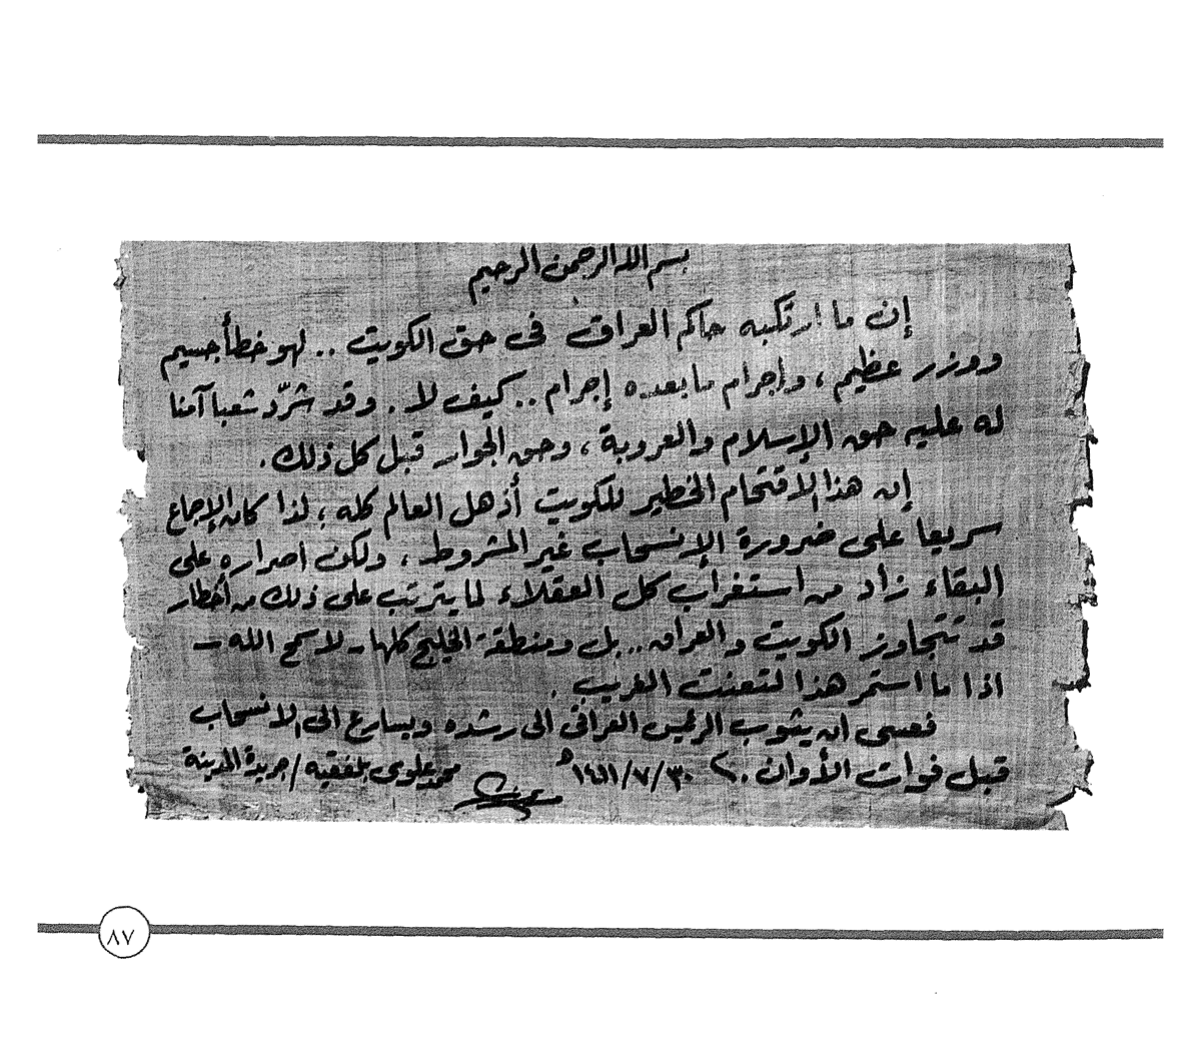 بسم الله الرحمن الرحيم
إن ما ارتكبه حاكم العراق في حق الكويت .. لهو خطأ جسيم
ووزر عظيم ، وإجرام ما بعده إجرام .. كيف لا . وقد شرّد شعبا آمنا
له عليه حق الإسلام والعروبة ، وحق الجوار قبل كل ذلك .
إن هذا الاقتحام الخطير للكويت أذهل العالم كله ؛ لذا كان الإجماع
سريعا على ضرورة الإنسحاب غير المشروط ، ولكن اصراره على
البقاء زاد من استغراب كل العقلاء لما يترتب على ذلك من أخطار
قد تتجاوز الكويت والعراق .. بل ومنطقة الخليج كلها - لا سمح الله -
اذا ما استمر هذا التعنت الغريب .
فعسى ان يثوب الرئيس العراقي الى رشده ويسارع الى الانسحاب
قبل فوات الأوان . ٣٠/٧/١٤١١هـ
محمد علوي بلفقيه / جريدة المدينة
٨٧